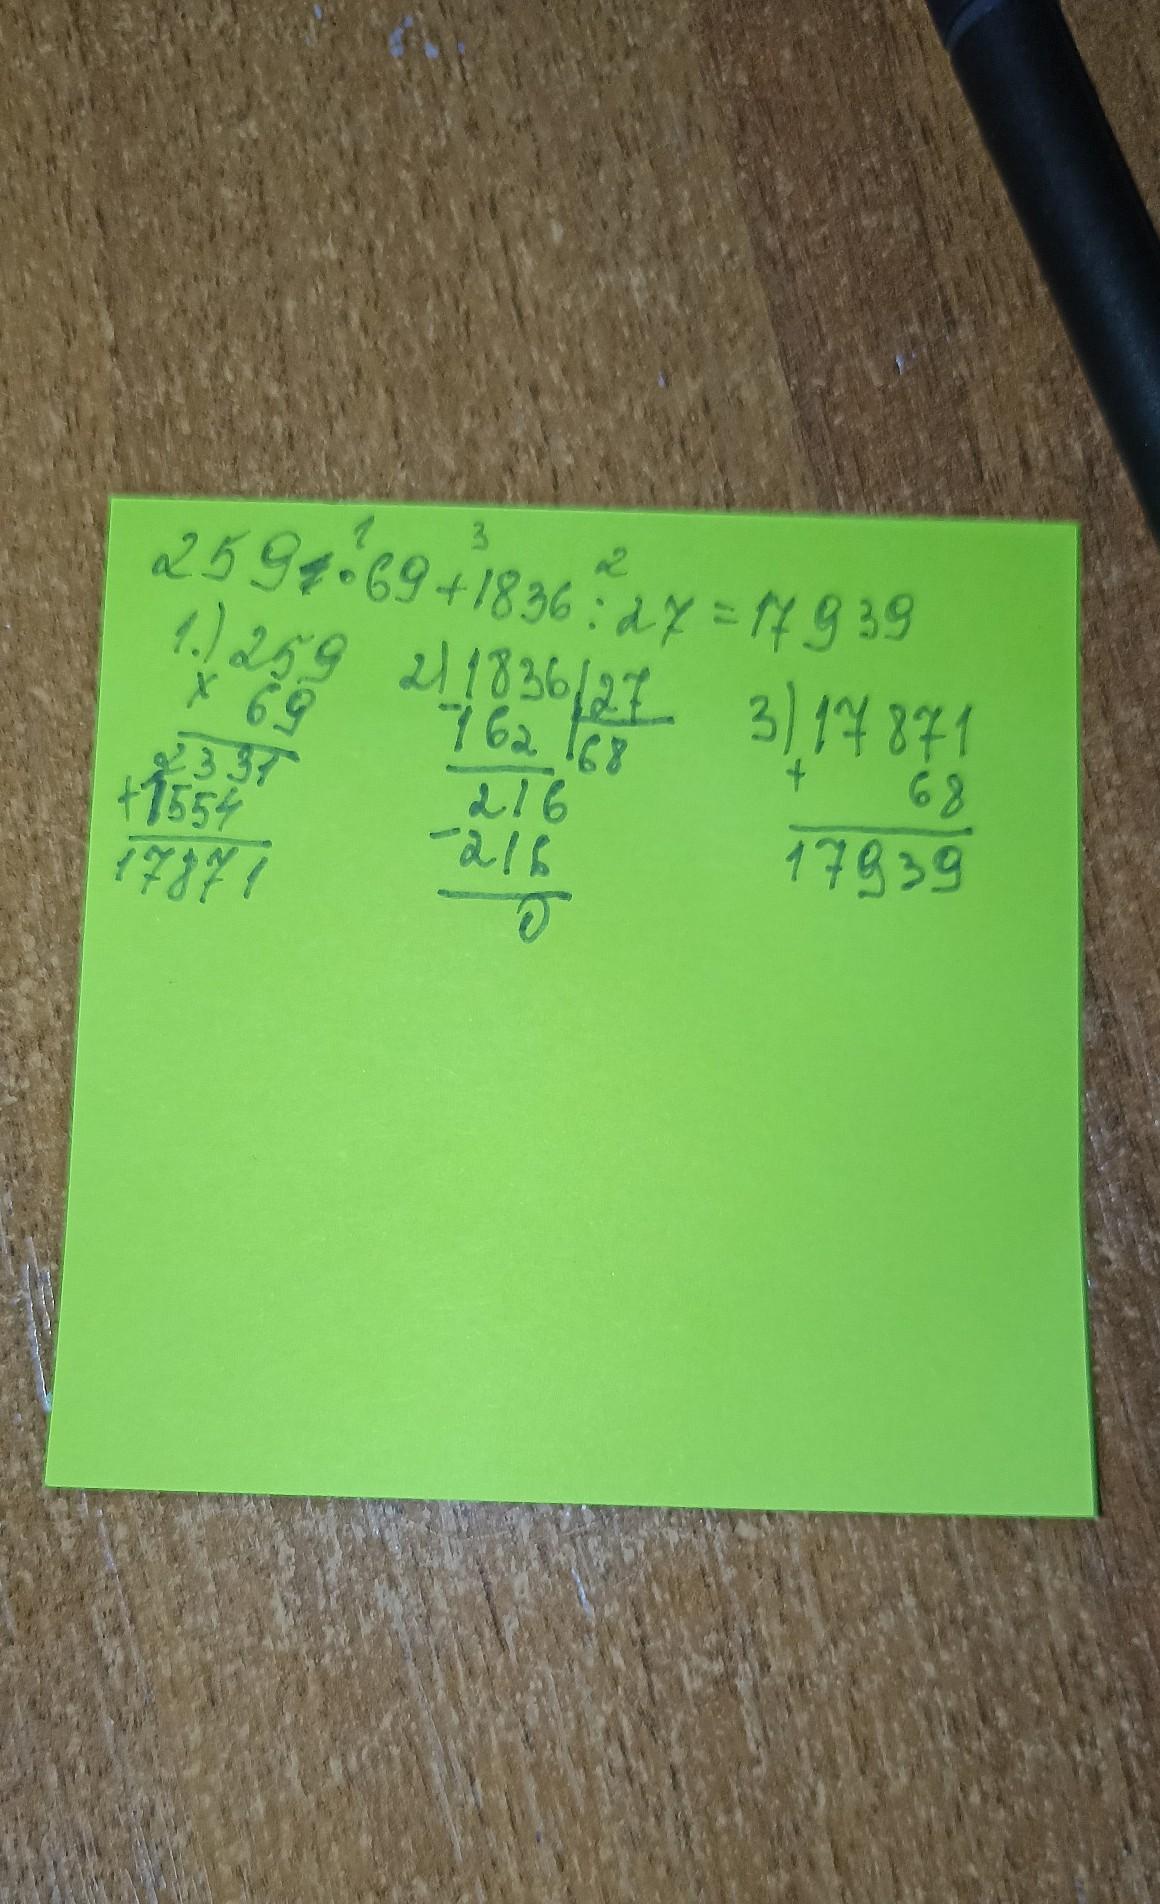 1 3 2
259·69+1836:27=17939
1.) 259 2) 1836 27 3) 17871
x 69 -162 68 + 68
2331 216 17939
+1554 -216
17871 0